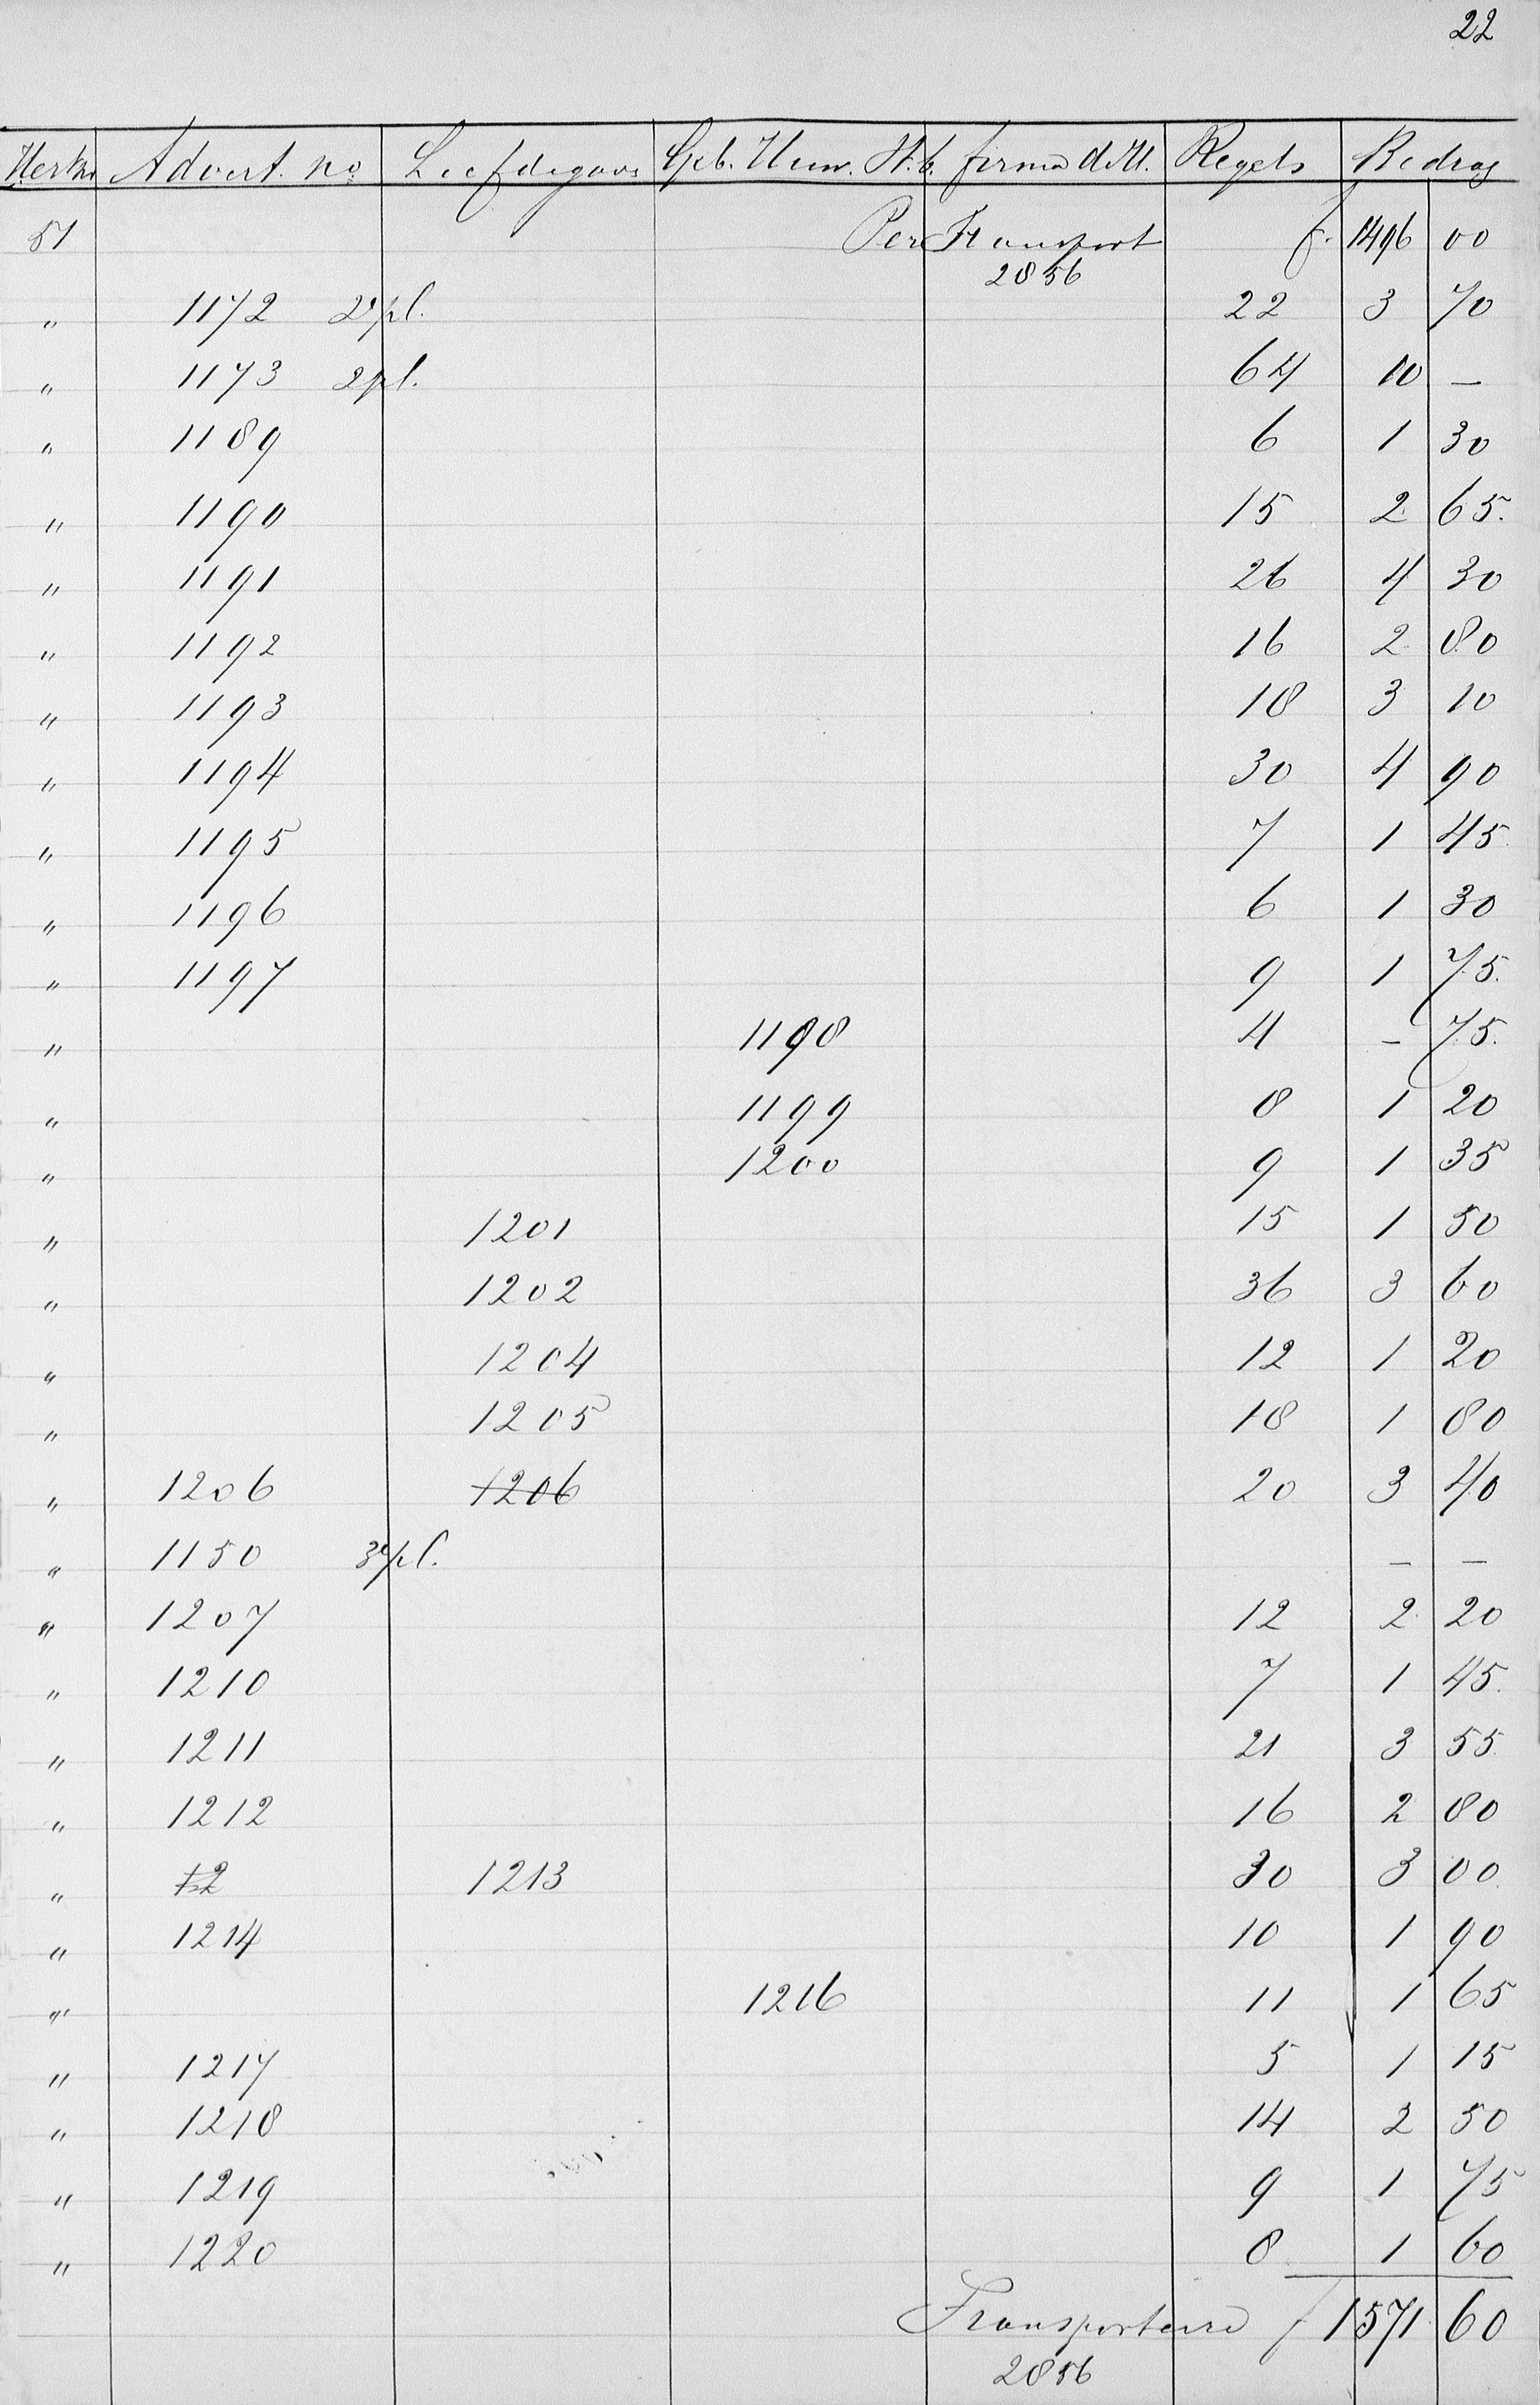 22
Advert. no. Liefdegave Geb. Huw. St. b. firma d. M. Regels Bedrag
51 Per Transport f. 1496 00
2856
" 1172 2e pl. 22 3 70
" 1173 2 pl. 64 10 –
" 1189 6 1 30
" 1190 15 2 65.
" 1191 26 4 30
" 1192 16 2 80
" 1193 18 3 10
" 1194 30 4 90
" 1195 7 1 45.
" 1196 6 1 30
" 1197 9 1 75.
" 1198 4 – 75.
" 1199 8 1 20
" 1200 9 1 35
" 1201 15 1 50
" 1202 36 3 60
" 1204 12 1 20
" 1205 18 1 80
" 1206 1206 20 3 40
" 1150 3e pl. – –
" 1207 12 2 20
" 1210 7 1 45.
" 1211 21 3 55
" 1212 16 2 80
" 12 1213 30 3 00
" 1214 10 1 90
" 1216 11 1 65
" 1217 5 1 15
" 1218 14 2 50
" 1219 9 1 75
" 1220 8 1 60
f 1571 60
2856